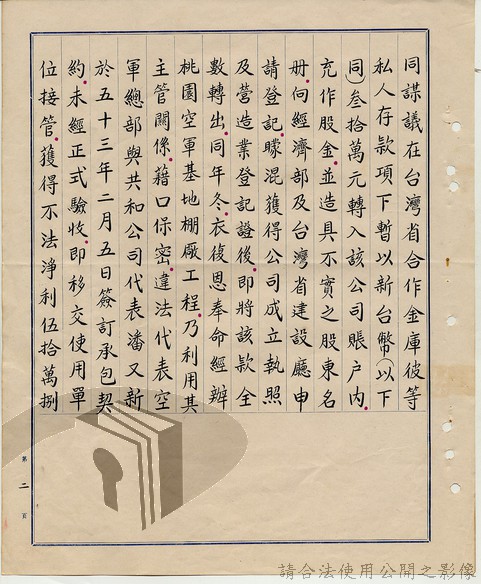 同謀議在台灣省合作金庫彼等
私人存款項下暫以新台幣(以下
同)叁拾萬元轉入該公司賬户內.
充作股金.並造具不實之股東名
册.向經濟部及台灣省建設廳申
請登記.矇混獲得公司成立執照
及營造業登記證後.即將該款全
數轉出.同年冬.衣復恩奉命經辦
桃園空軍基地棚廠工程.乃利用其
主管關係.藉口保密.違法代表空
軍總部與共和公司代表潘又新
於五十三年二月五日簽訂承包契
約.未經正式驗收.即移交使用單
位接管.獲得不法淨利伍拾萬捌
第二頁
請合法使用公開之影像